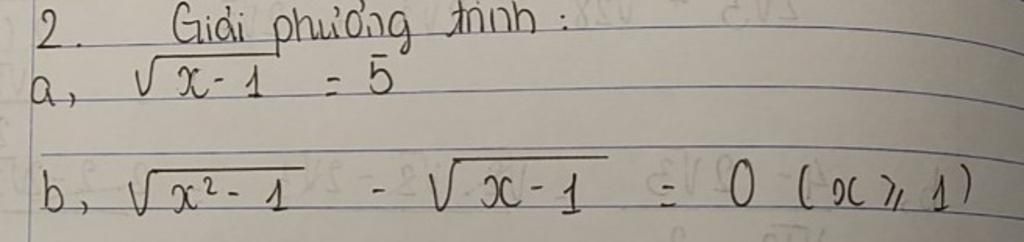 2. Giải phương trình :
a, √(x - 1) = 5
b, √(x² - 1) - √(x - 1) = 0 (x ⩾ 1)